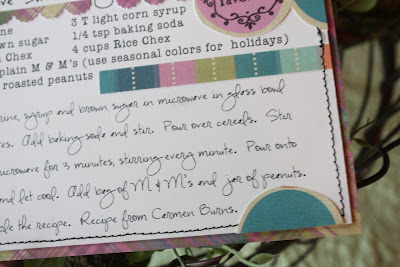 3 T light corn syrup
wn sugar 1/4 tsp baking soda
Chex 4 cups Rice Chex
plain M & M's (use seasonal colors for holidays)
roasted peanuts
rine, syrup and brown sugar in microwave in glass bowl
es. Add baking soda and stir. Pour over cereals. Stir
microwave for 3 minutes, stirring every minute. Pour onto
and let cool. Add bag of M & M's and jar of peanuts.
ble the recipe. Recipe from Carmen Burns.